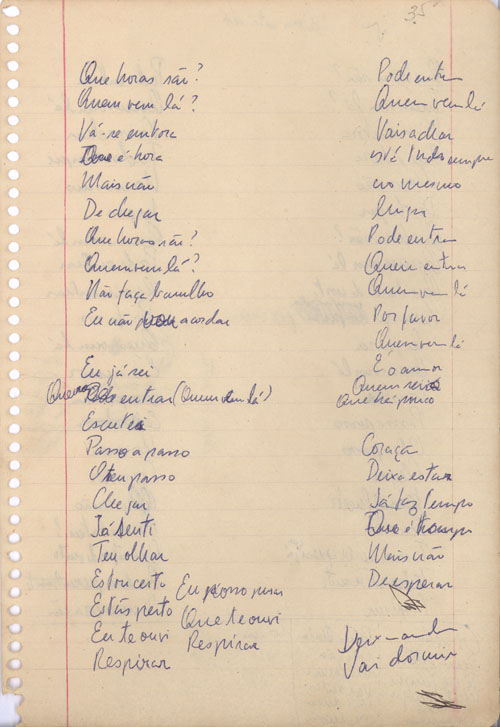 35
Que horas são?
Quem vem lá?
Vá-se embora
Que é hora
Mais não
De chegar
Que horas são?
Quem vem lá?
Não faça barulho
Eu não acordar
Eu já sei
Quero entrar (Quem vem lá)
Escutei
Passo a passo
passo
Chegar
Já senti
Teu olhar
Estou certo
Estás perto
Eu te ouvi
Respirar
Eu posso jurar
Que te ouvi
Respirar
Pode entrar
Quem vem lá
Vais achar
está tudo sempre
no mesmo
lugar
Pode entrar
Quem vem lá
Por favor
Quem vem lá
É o amor
Quem será
Que há pouco
Coração
Deixa estar
Já faz tempo
Que é tempo
Mais não
De esperar
Vai dormir